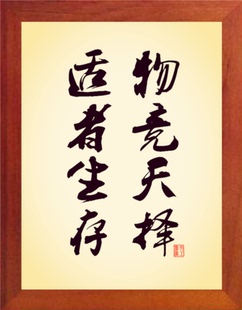 物竞天择
适者生存